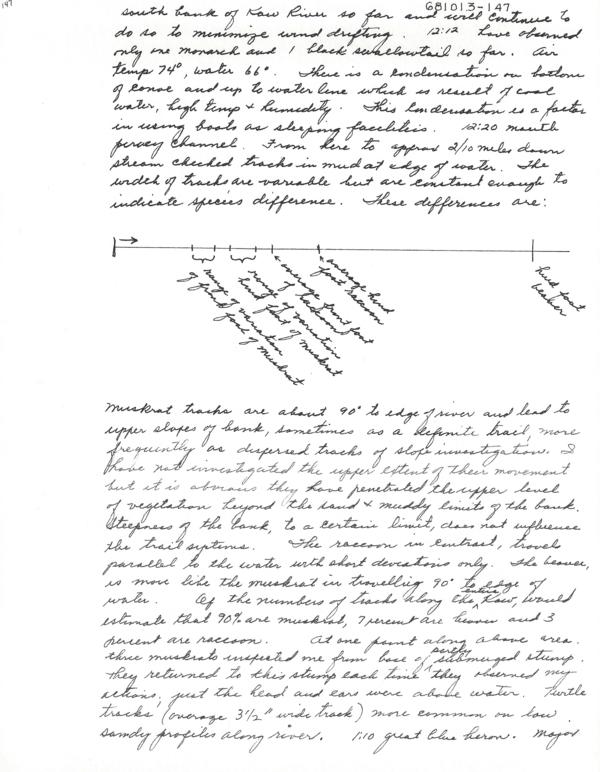 147
681013-147
south bank of Kaw River so far and will continue to
do so to minimize wind drifting. 12:12 have observed
only one monarch and 1 black swallowtail so far. Air
temp 74°, water 66°. There is a condensation on bottom
of canoe and up to water line which is result of cool
water, high temp & humidity. This condensation is a factor
in using boats as sleeping facilities. 12:20 mouth
piracy channel. From here to approx 2/10 miles down
stream checked tracks in mud at edge of water. The
width of tracks are variable but are constant enough to
indicate species difference. These differences are:
range of variation
of front foot of muskrat
range of variation
hind foot of muskrat
average front foot
of raccoon
average hind
foot raccoon
hind foot
beaver
Muskrat tracks are about 90° to edge of river and lead to
upper slopes of bank, sometimes as a definite trail, more
frequently as dispersed tracks of slope investigation. I
have not investigated the upper extent of their movement
but it is obvious they have penetrated the upper level
of vegetation beyond the sand & muddy limits of the bank.
Steepness of the bank, to a certain limit, does not influence
the trail systems. The raccoon in contrast, travels
parallel to the water with short deviations only. The beaver,
is more like the muskrat in travelling 90° to edge of
water. Of the numbers of tracks along the entire Kaw, would
estimate that 90% are muskrat, 7 percent are beaver and 3
percent are raccoon. At one point along above area
three muskrats inspected me from base of partly submerged stump.
They returned to this stump each time they observed my
actions, just the head and ears were above water. Turtle
tracks (average 3 1/2" wide track) more common on low
sandy profiles along river. 1:10 great blue heron. Major